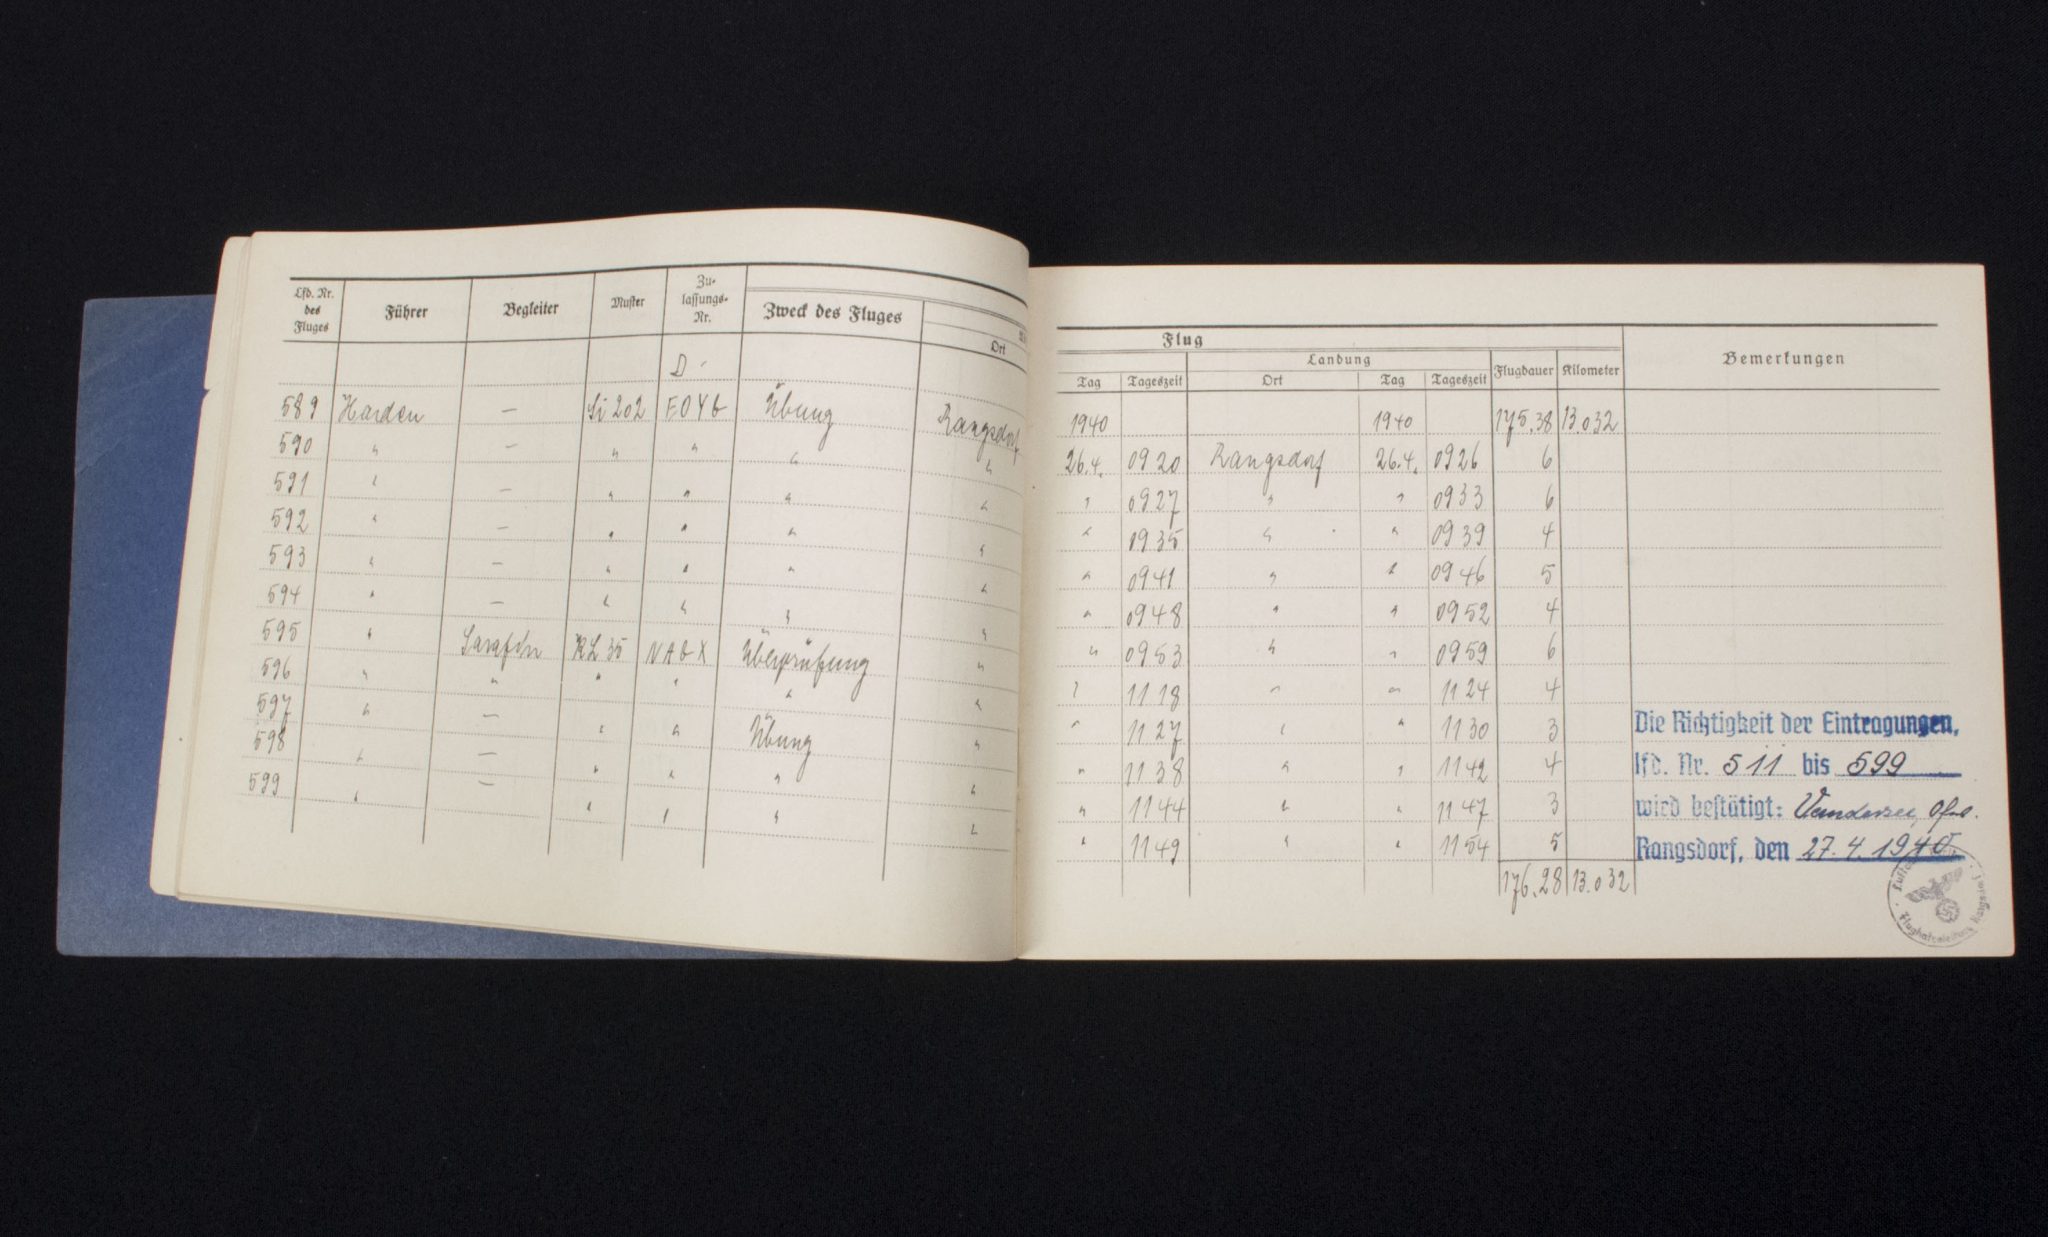 Lfd. Nr. des Fluges Führer Begleiter Muster Zu-lassungs-Nr. Zweck des Fluges Ort
D -
589 Harden — Si 202 EOYG Übung Rangsdorf
590 " — " " " "
591 " — " " " "
592 " — " " " "
593 " — " " " "
594 " — " " " "
595 " Sarafin KL 35 NAGX Überprüfung "
596 " " " " " "
597 " — " " Übung "
598 " — " " " "
599 " — " " " "
Flug
Landung
Tag Tageszeit Ort Tag Tageszeit Flugdauer Kilometer Bemerkungen
1940 1940 175.38 13.032
26.4. 0920 Rangsdorf 26.4. 0926 6
" 0927 " " 0933 6
" 0935 " " 0939 4
" 0941 " " 0946 5
" 0948 " " 0952 4
" 0953 " " 0959 6
" 1118 " " 1124 4
" 1127 " " 1130 3
" 1138 " " 1142 4
" 1144 " " 1147 3
" 1149 " " 1154 5
176.28 13.032
Die Richtigkeit der Eintragungen,
lfd. Nr. 511 bis 599
wird bestätigt:
Rangsdorf, den 27.4.1940
Flughafenleitung Rangsdorf